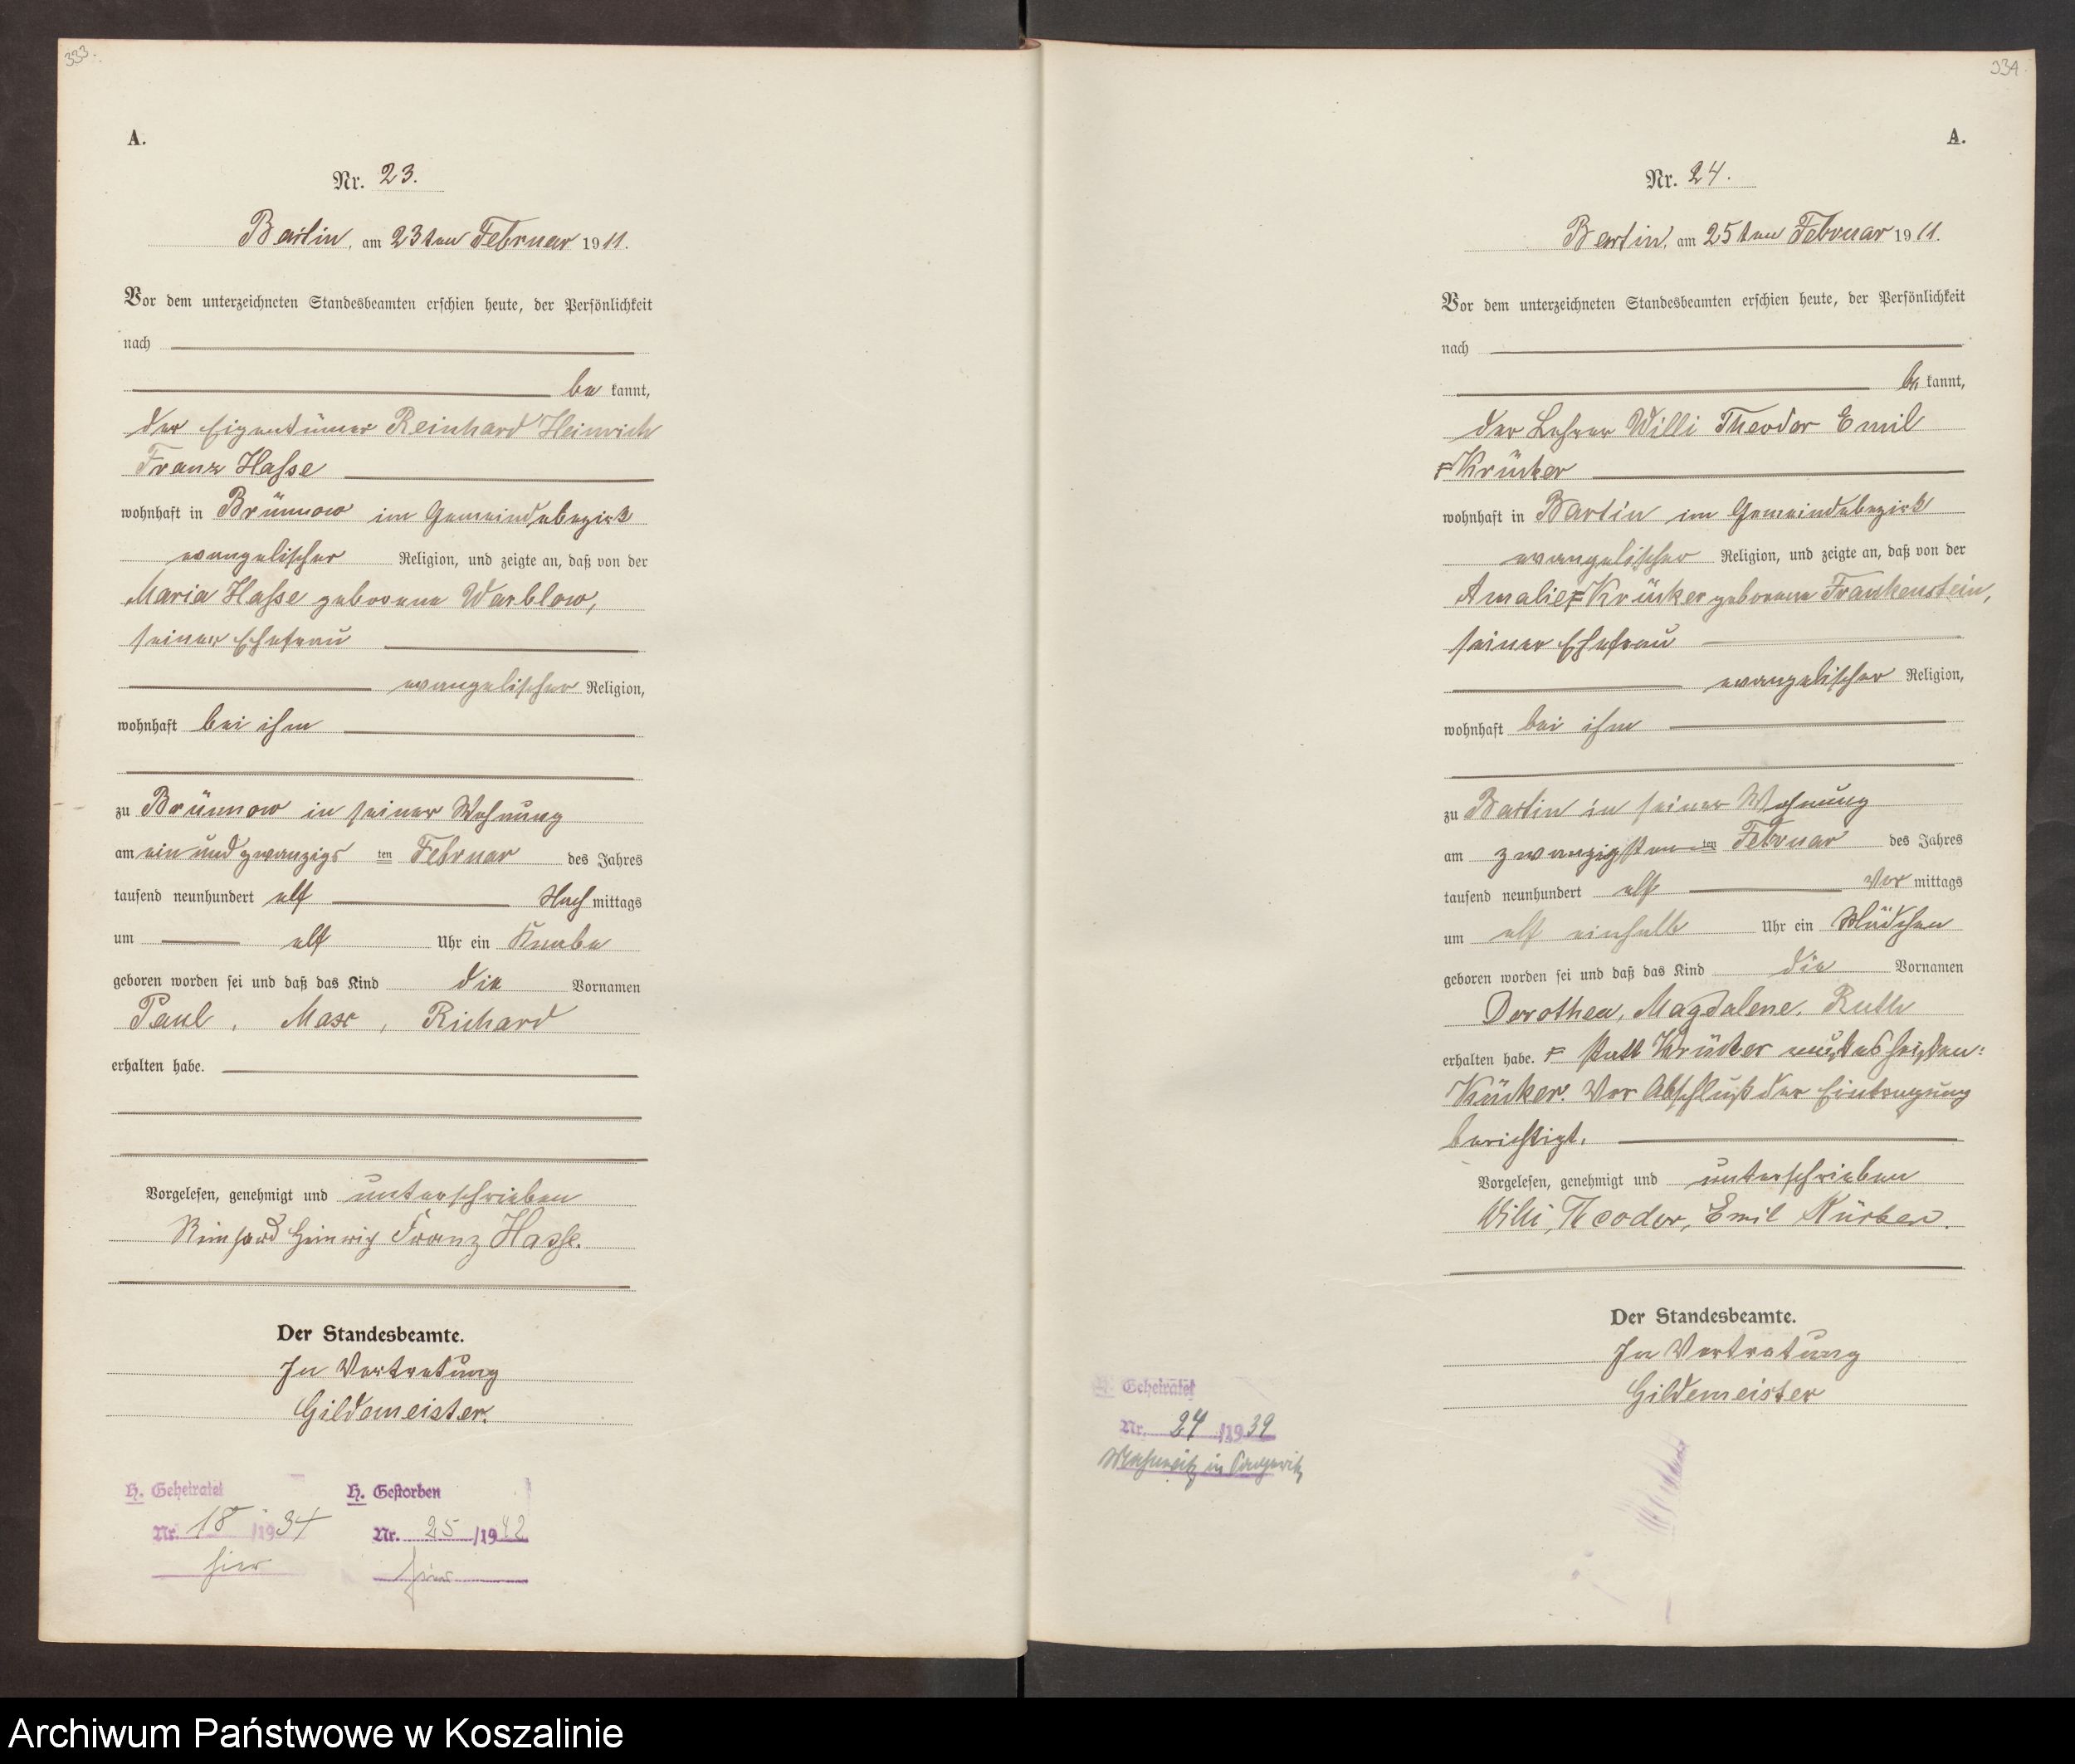 333.
A.
Nr. 23.
Bartin, am 23ten Februar 1911.
Vor dem unterzeichneten Standesbeamten erschien heute, der Persönlichkeit
nach
be kannt,
der Eigentümer Reinhard Heinrich
Franz Hasse
wohnhaft in Brünnow im Gemeindebezirk
evangelischer Religion, und zeigte an, daß von der
Maria Hasse geborene Warblow,
seiner Ehefrau
evangelischer Religion,
wohnhaft bei ihm
zu Brünnow in seiner Wohnung
am ein und zwanzigs ten Februar des Jahres
tausend neunhundert elf Nach mittags
um elf Uhr ein Knabe
geboren worden sei und daß das Kind die Vornamen
Paul, Max, Richard
erhalten habe.
Vorgelesen, genehmigt und unterschrieben
Reinhard Heinrich Franz Hasse.
Der Standesbeamte.
In Vertretung
Gildemeister.
H. Geheiratet
Nr. 18 /1934
hier
H. Gestorben
Nr. 25 /1942
hier
334.
A.
Nr. 24.
Bartin, am 25ten Februar 1911.
Vor dem unterzeichneten Standesbeamten erschien heute, der Persönlichkeit
nach
be kannt,
der Lehrer Willi Theodor Emil
Krücker
wohnhaft in Bartin im Gemeindebezirk
evangelischer Religion, und zeigte an, daß von der
Amalie Krücker geborene Frankenstein,
seiner Ehefrau
evangelischer Religion,
wohnhaft bei ihm
zu Bartin in seiner Wohnung
am zwanzigsten ten Februar des Jahres
tausend neunhundert elf Vor mittags
um elf einhalb Uhr ein Mädchen
geboren worden sei und daß das Kind die Vornamen
Dorothea, Magdalene, Ruth
erhalten habe. F statt Krücker muß es heißen:
Kücker. Vor Abschluß der Eintragung
berichtigt.
Vorgelesen, genehmigt und unterschrieben
Willi, Theodor, Emil Kücker.
Der Standesbeamte.
In Vertretung
Gildemeister
H. Geheiratet
Nr. 24 /1939
in
Archiwum Państwowe w Koszalinie